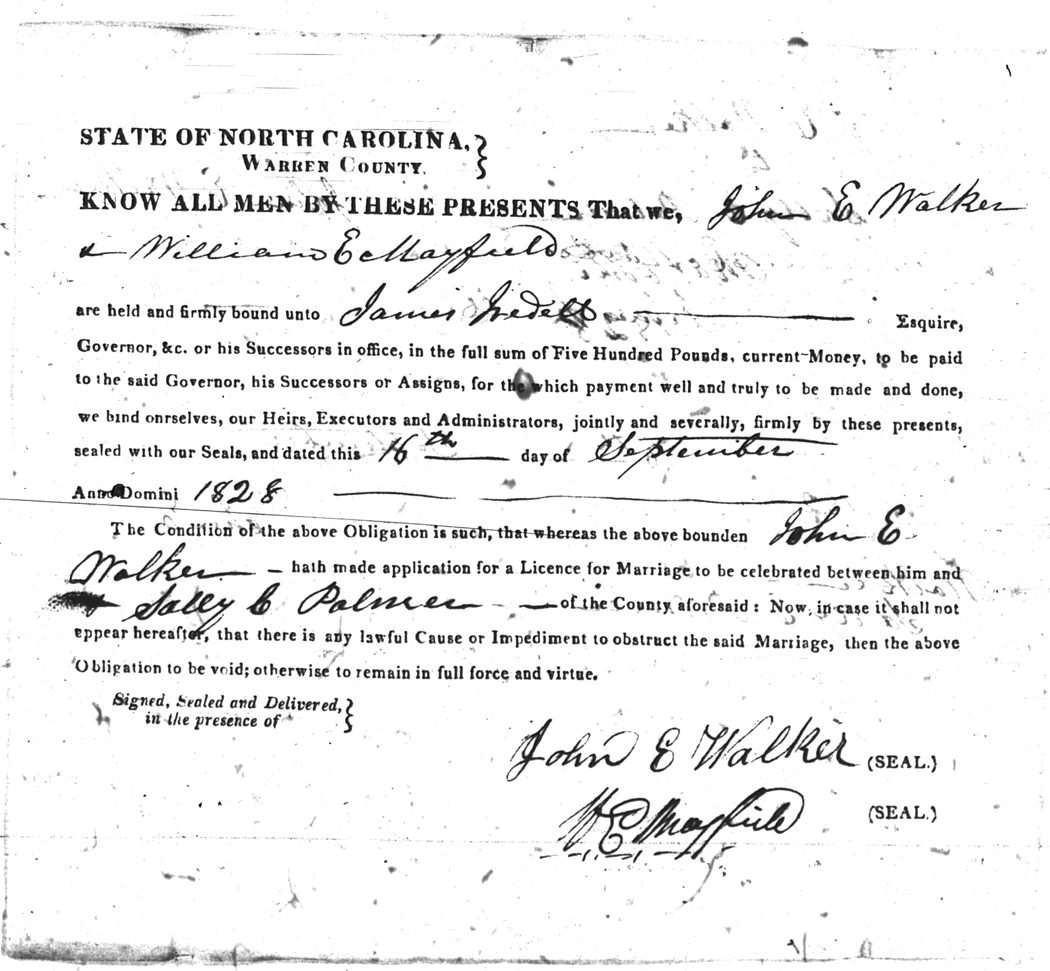 STATE OF NORTH CAROLINA,
WARREN COUNTY.
KNOW ALL MEN BY THESE PRESENTS That we, John E Walker
& William E Mayfield
are held and firmly bound unto James Iredell Esquire,
Governor, &c. or his Successors in office, in the full sum of Five Hundred Pounds, current-Money, to be paid
to the said Governor, his Successors or Assigns, for the which payment well and truly to be made and done,
we bind onrselves, our Heirs, Executors and Administrators, jointly and severally, firmly by these presents,
sealed with our Seals, and dated this 16th day of September
Anno Domini 1828
The Condition of the above Obligation is such, that whereas the above bounden John E
Walker — hath made application for a Licence for Marriage to be celebrated between him and
Sally C Palmer — of the County aforesaid: Now, in case it shall not
appear hereafter, that there is any lawful Cause or Impediment to obstruct the said Marriage, then the above
Obligation to be void; otherwise to remain in full force and virtue.
Signed, Sealed and Delivered,
in the presence of
John E Walker (SEAL.)
W E Mayfield (SEAL.)